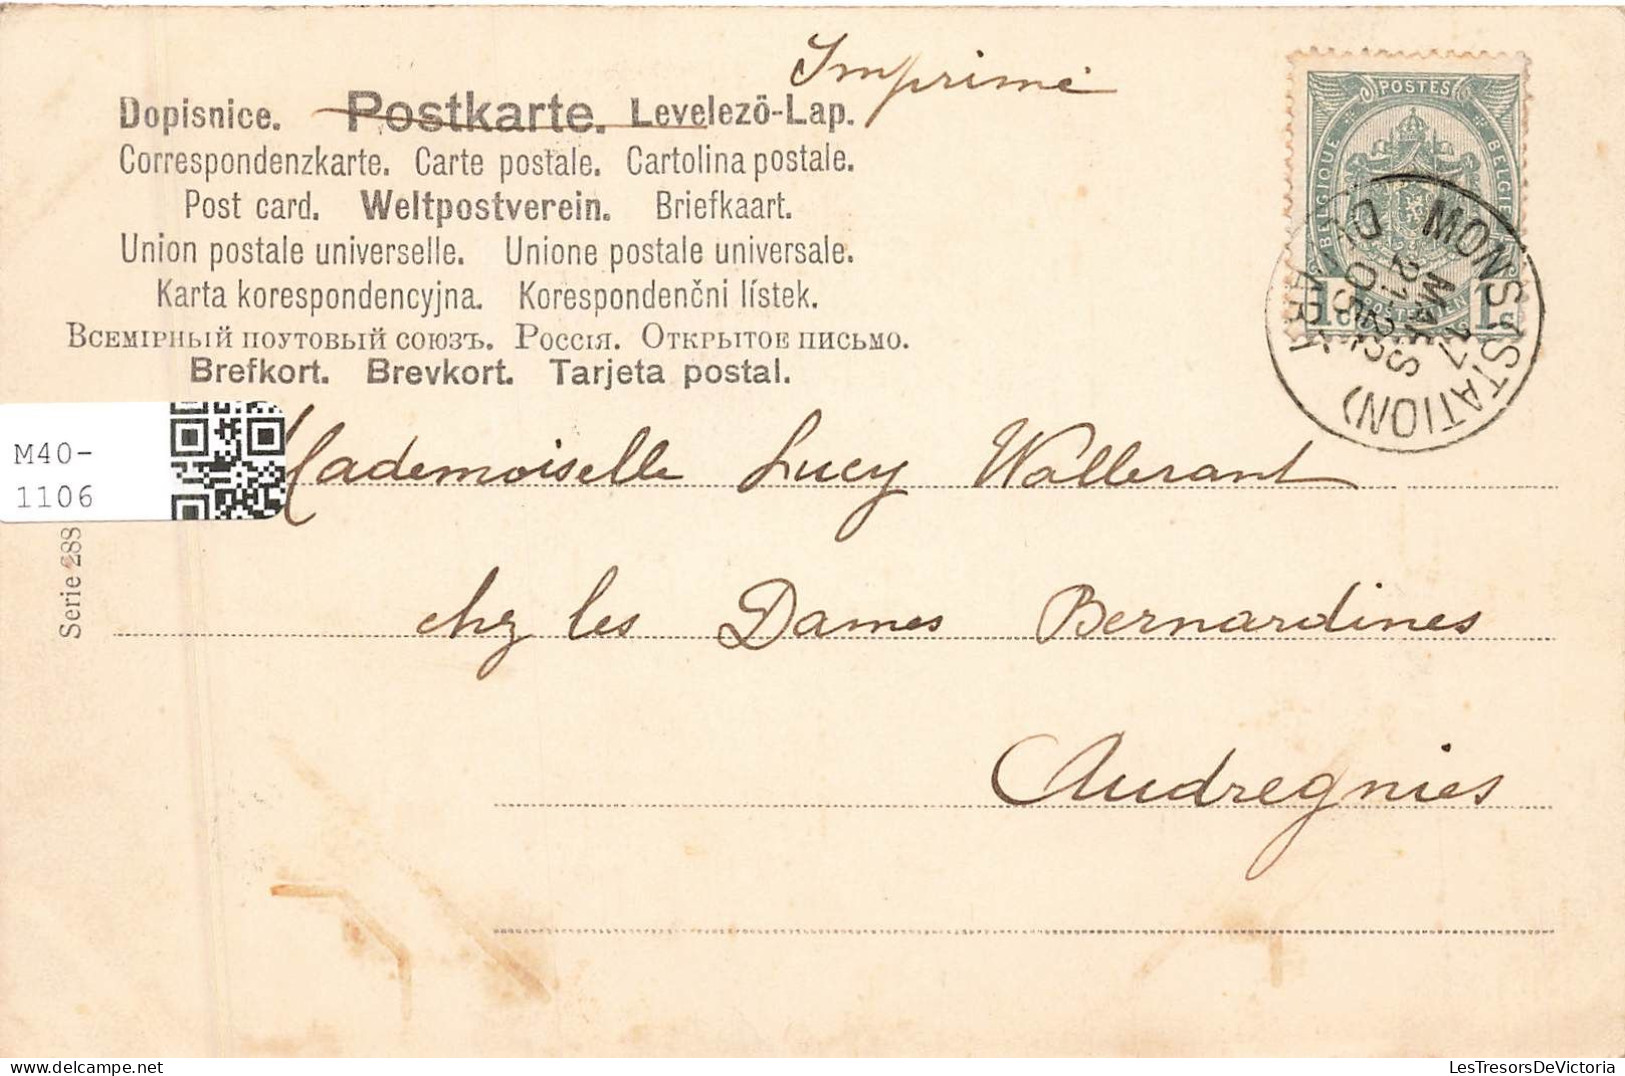 Imprimé
Dopisnice. Postkarte. Levelezö-Lap.
Correspondenzkarte. Carte postale. Cartolina postale.
Post card. Weltpostverein. Briefkaart.
Union postale universelle. Unione postale universale.
Karta korespondencyjna. Korespondenčni lístek.
Всемірный поутовый союзъ. Россія. Открытое письмо.
Brefkort. Brevkort. Tarjeta postal.
POSTES
BELGIQUE BELGIE
1c 1c
MONS (STATION)
MARS
M40-
1106
Serie 288
Mademoiselle Lucy Wallerant
chez les Dames Bernardines
Audregnies
LesTresorsDeVictoria